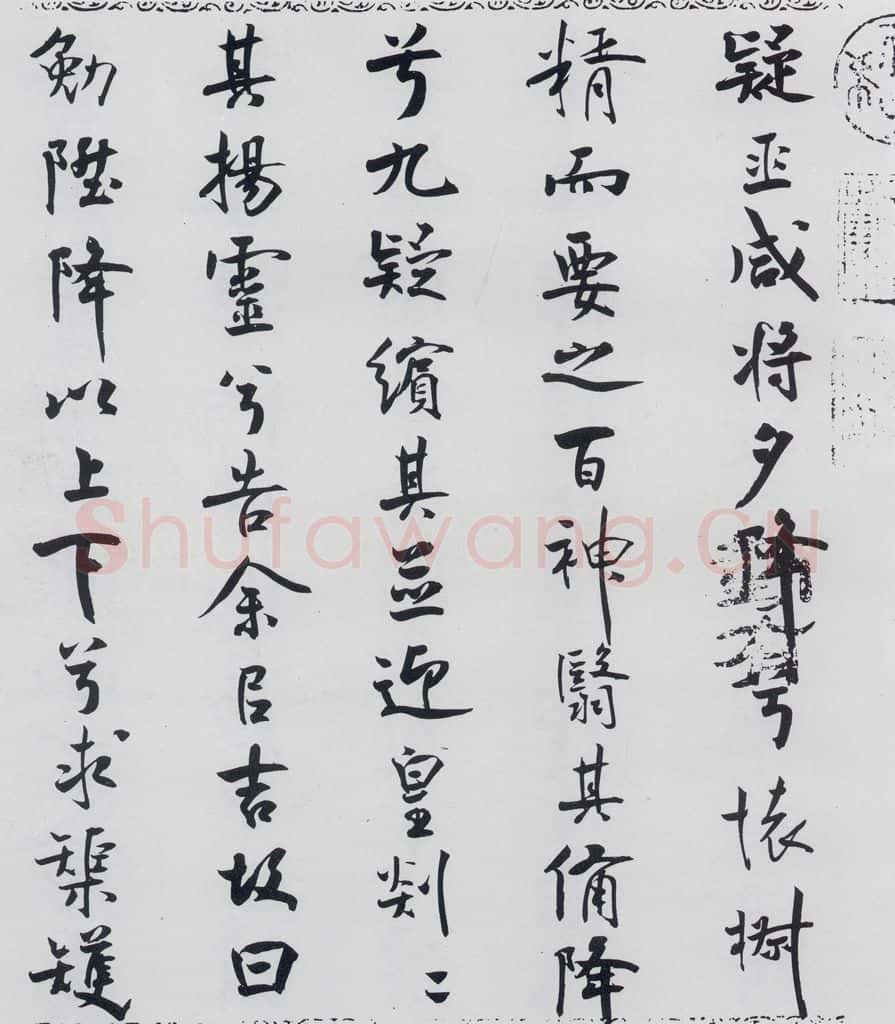 疑巫咸将夕降兮懐椒
精而要之百神翳其俻降
兮九疑繽其並迎皇剡〻
其揚靈兮告余㠯吉故曰
勉陞降以上下兮求榘矱
Shufawang.CN